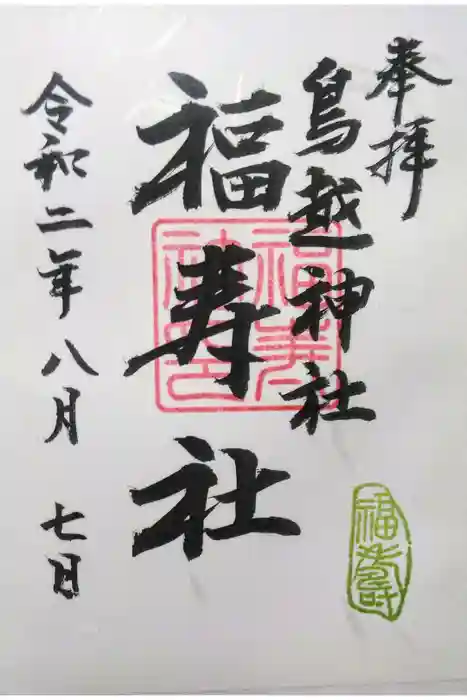 奉拝
鳥越神社
福寿社
令和二年八月七日
福寿社印
福寿